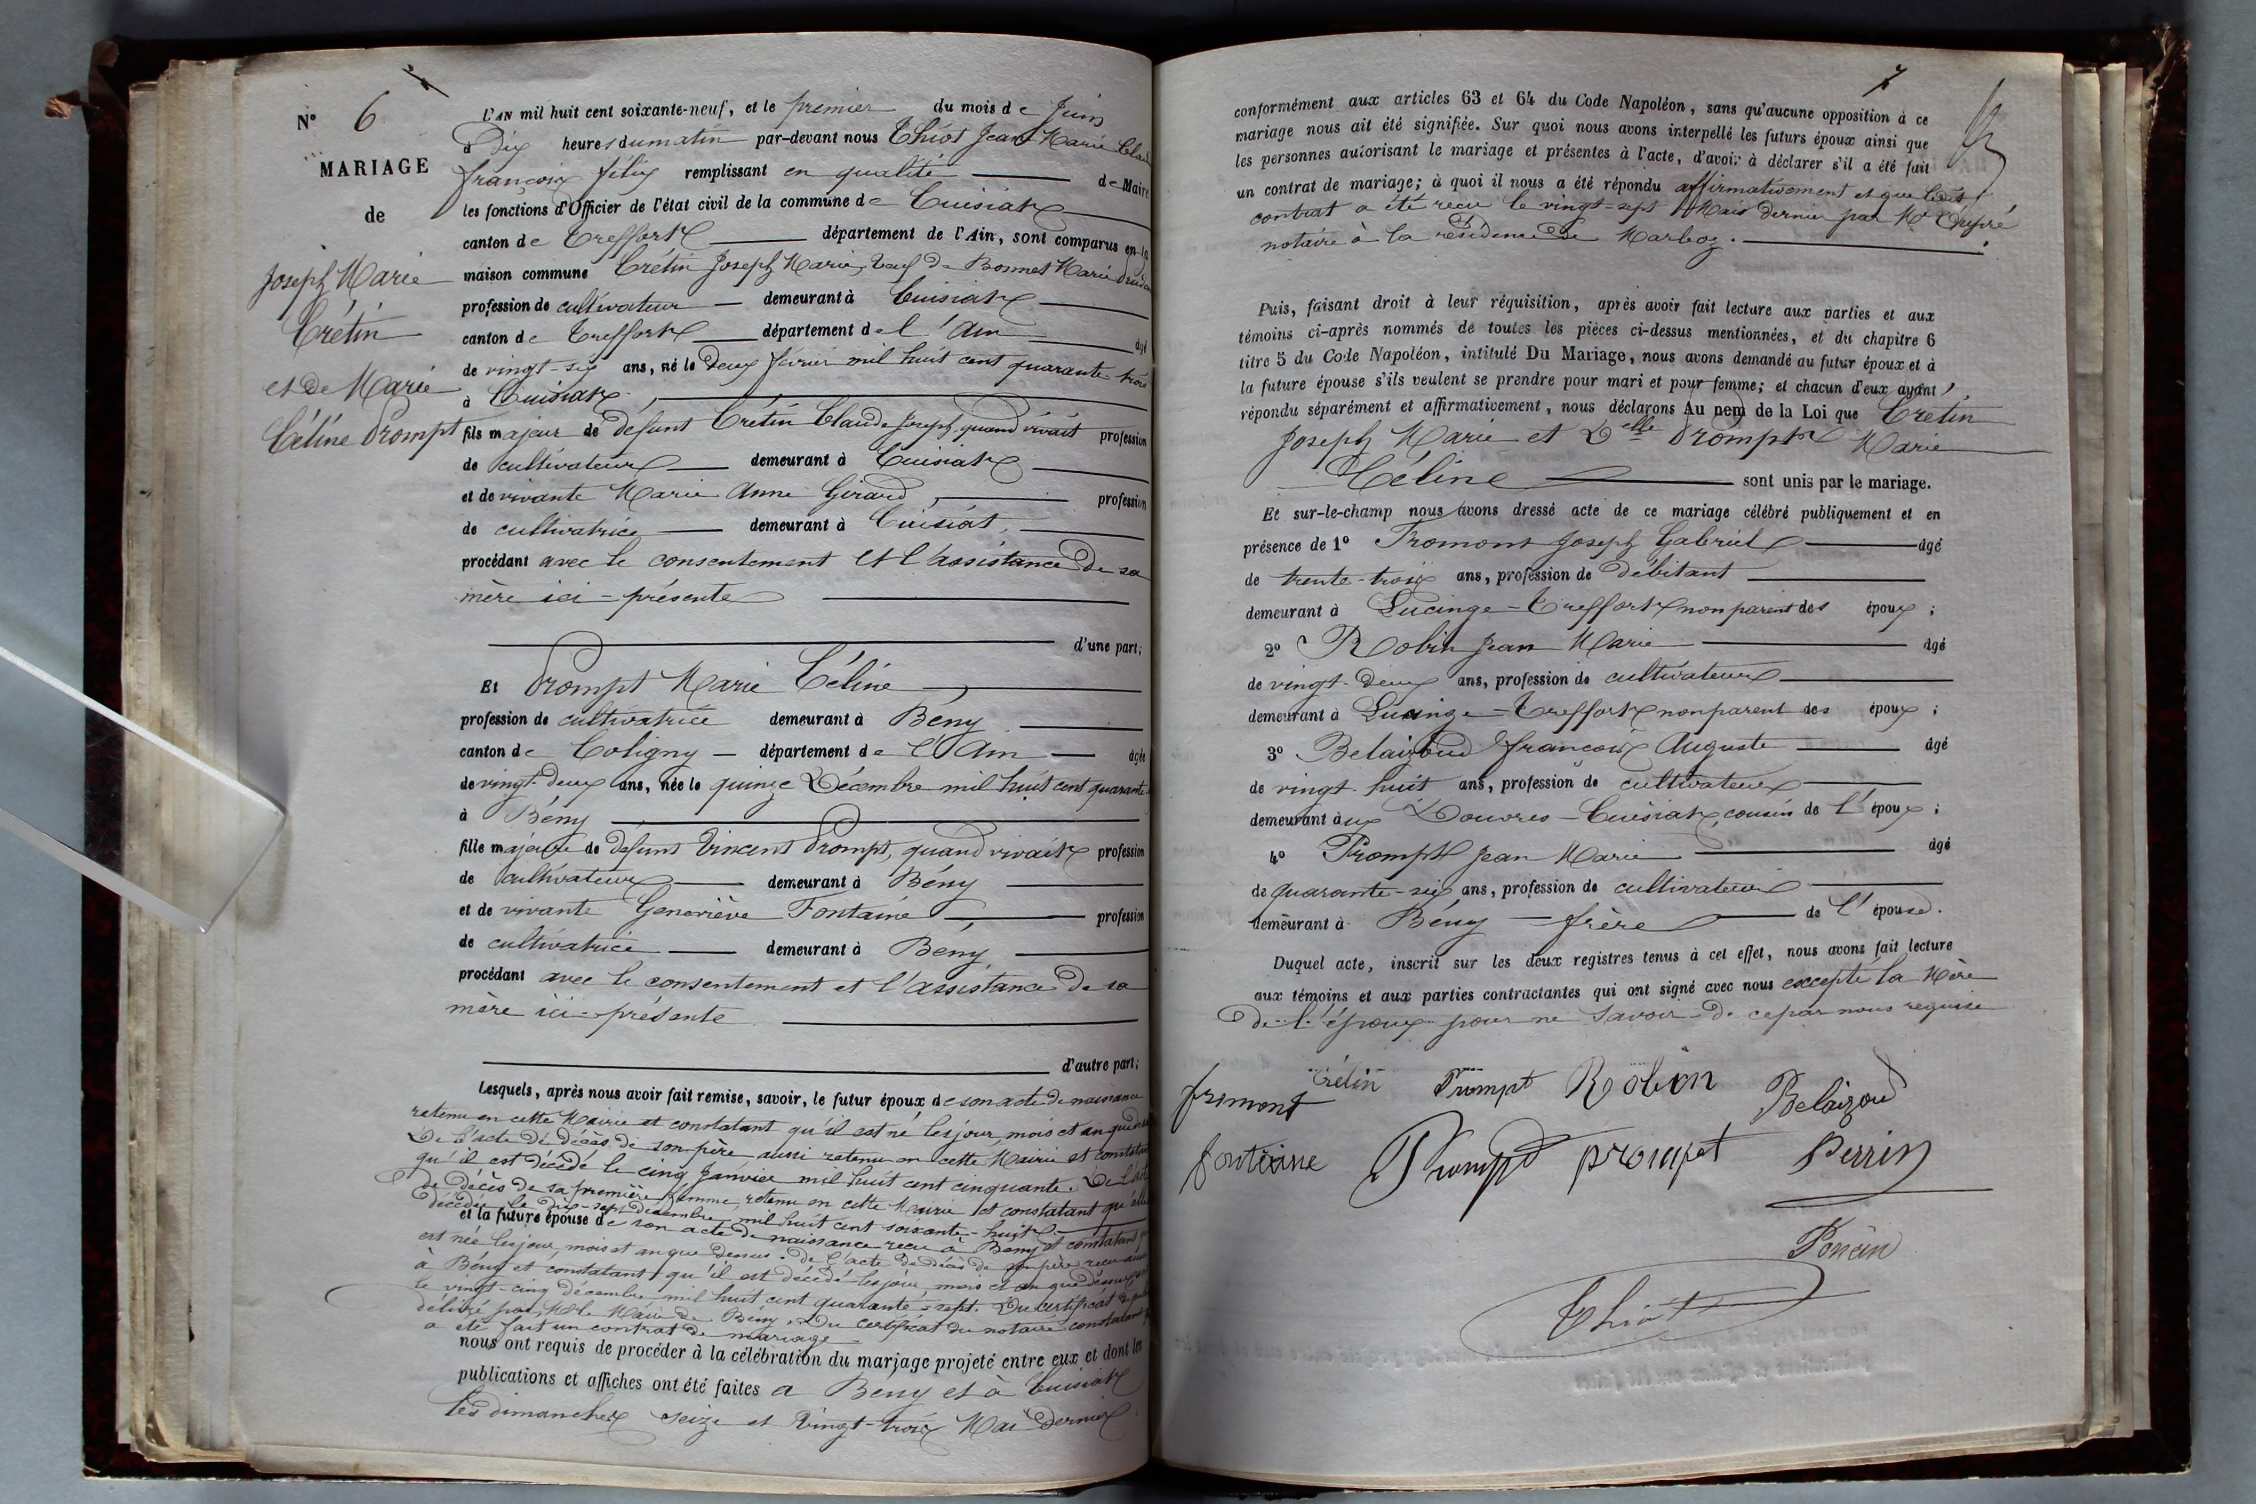 N° 6
MARIAGE
de
Joseph Marie
Crétin
et de Marie
Céline Prompt
L'AN mil huit cent soixante-neuf, et le premier du mois de Juin
à dix heures du matin par-devant nous Thiot Jean Marie Claude
françois félix remplissant en qualité de Maire
les fonctions d'Officier de l'état civil de la commune de Cuisiat
canton de Treffort département de l'Ain, sont comparus en la
maison commune Crétin Joseph Marie, veuf de Bonnet Marie
profession de cultivateur demeurant à Cuisiat
canton de Treffort département de l'Ain âgé
de vingt-six ans, né le deux février mil huit cent quarante trois
à Cuisiat,
fils majeur de défunt Crétin Claude Joseph, quand vivait profession
de cultivateur demeurant à Cuisiat
et de vivante Marie Anne Girard, profession
de cultivatrice demeurant à Cuisiat,
procédant avec le consentement et l'assistance de sa
mère ici-présente
d'une part;
Et Prompt Marie Céline,
profession de cultivatrice demeurant à Bény
canton de Coligny département de l'Ain âgée
de vingt-deux ans, née le quinze Décembre mil huit cent quarante
à Bény
fille majeure de défunt Vincent Prompt, quand vivait profession
de cultivateur demeurant à Bény
et de vivante Geneviève Fontaine, profession
de cultivatrice demeurant à Bény,
procédant avec le consentement et l'assistance de sa
mère ici-présente
d'autre part;
Lesquels, après nous avoir fait remise, savoir, le futur époux de son acte de naissance
retenu en cette Mairie et constatant qu'il est né les jour, mois et an que dessus
De l'acte de décès de son père aussi retenu en cette Mairie et constatant
qu'il est décédé le cinq Janvier mil huit cent cinquante. De l'acte
de décès de sa première femme, retenu en cette Mairie et constatant qu'elle
décédée le dix-sept décembre mil huit cent soixante-huit
et la future épouse de son acte de naissance reçu à Bény et constatant
est née les jour, mois et an que dessus. de l'acte de décès de son père reçu aussi
à Bény et constatant qu'il est décédé les jour, mois et an que dessus
le vingt-cinq décembre mil huit cent quarante-sept. Du certificat de
délivré par M. le Maire de Bény. Du certificat du notaire constatant
a été fait un contrat de mariage
nous ont requis de procéder à la célébration du mariage projeté entre eux et dont les
publications et affiches ont été faites à Bény et à Cuisiat
les dimanches seize et vingt-trois Mai dernier
7
conformément aux articles 63 et 64 du Code Napoléon, sans qu'aucune opposition à ce
mariage nous ait été signifiée. Sur quoi nous avons interpellé les futurs époux ainsi que
les personnes autorisant le mariage et présentes à l'acte, d'avoir à déclarer s'il a été fait
un contrat de mariage; à quoi il nous a été répondu affirmativement et que ledit
contrat a été reçu le vingt-sept Mai dernier par Me Dupré
notaire à la résidence de Marboz.
Puis, faisant droit à leur réquisition, après avoir fait lecture aux parties et aux
témoins ci-après nommés de toutes les pièces ci-dessus mentionnées, et du chapitre 6
titre 5 du Code Napoléon, intitulé Du Mariage, nous avons demandé au futur époux et à
la future épouse s'ils veulent se prendre pour mari et pour femme; et chacun d'eux ayant
répondu séparément et affirmativement, nous déclarons Au nom de la Loi que Crétin
Joseph Marie et Delle Prompt Marie
Céline sont unis par le mariage.
Et sur-le-champ nous avons dressé acte de ce mariage célébré publiquement et en
présence de 1° Fromont Joseph Gabriel âgé
de trente-trois ans, profession de débitant
demeurant à Lucinge-Treffort non parent des époux;
2° Robin Jean Marie âgé
de vingt-deux ans, profession de cultivateur
demeurant à Lucinge-Treffort non parent des époux;
3° Belaizoud françois Auguste âgé
de vingt-huit ans, profession de cultivateur
demeurant aux Douvres-Cuisiat, cousin de l'époux;
4° Prompt Jean Marie âgé
de quarante-six ans, profession de cultivateur
demeurant à Bény frère de l'épouse.
Duquel acte, inscrit sur les deux registres tenus à cet effet, nous avons fait lecture
aux témoins et aux parties contractantes qui ont signé avec nous excepté la Mère
de l'époux pour ne savoir de ce par nous requise
Crétin Prompt Robin Belaizoud
fremont
fontaine Prompt prompt Perrin
Poncin
Thiot